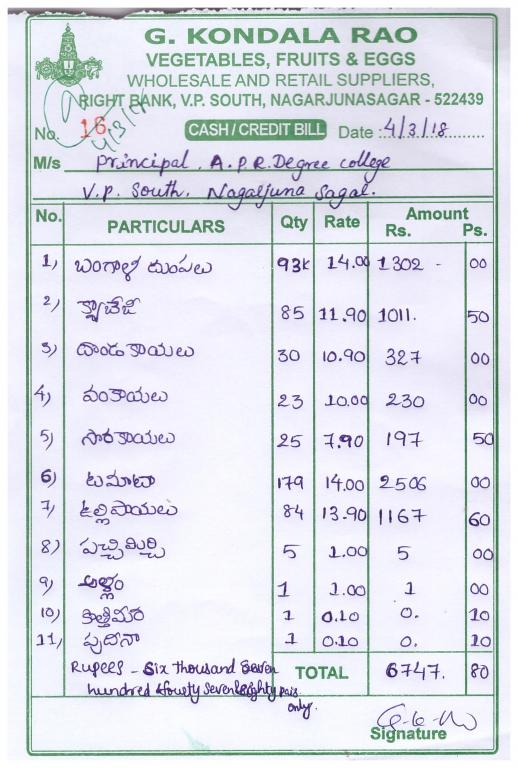 G. KONDALA RAO
VEGETABLES, FRUITS & EGGS
WHOLESALE AND RETAIL SUPPLIERS,
RIGHT BANK, V.P. SOUTH, NAGARJUNASAGAR - 522439
No. 16 CASH / CREDIT BILL Date : 4/3/18
4/3/18
M/s Principal, A.P.R. Degree college
V.P. South, Nagarjuna Sagar.
No. PARTICULARS Qty Rate Amount
Rs. Ps.
1) బంగాళ దుంపలు 93k 14.00 1302 - 00
2) క్యాబేజీ 85 11.90 1011. 50
3) దొండకాయలు 30 10.90 327 00
4) వంకాయలు 23 10.00 230 00
5) సొరకాయలు 25 7.90 197 50
6) టమాటా 179 14.00 2506 00
7) ఉల్లిపాయలు 84 13.90 1167 60
8) పచ్చిమిర్చి 5 1.00 5 00
9) అల్లం 1 1.00 1 00
10) కొత్తిమీర 1 0.10 0. 10
11) పుదీనా 1 0.10 0. 10
Rupees - Six thousand Seven TOTAL 6747. 80
hundred & fourty Seven & Eighty pais
only.
Signature